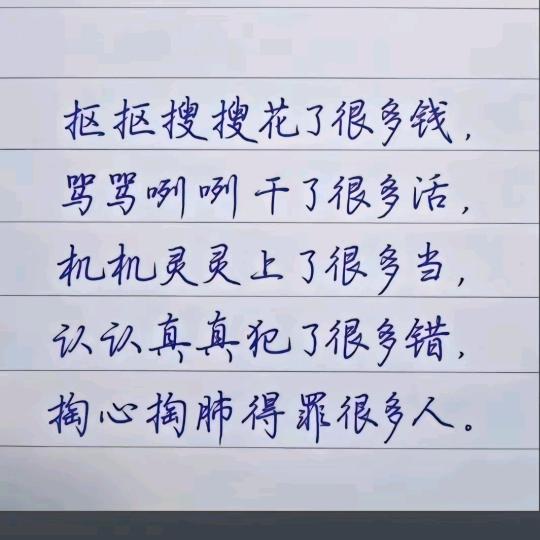 抠抠搜搜花了很多钱，
骂骂咧咧干了很多活，
机机灵灵上了很多当，
认认真真犯了很多错，
掏心掏肺得罪很多人。